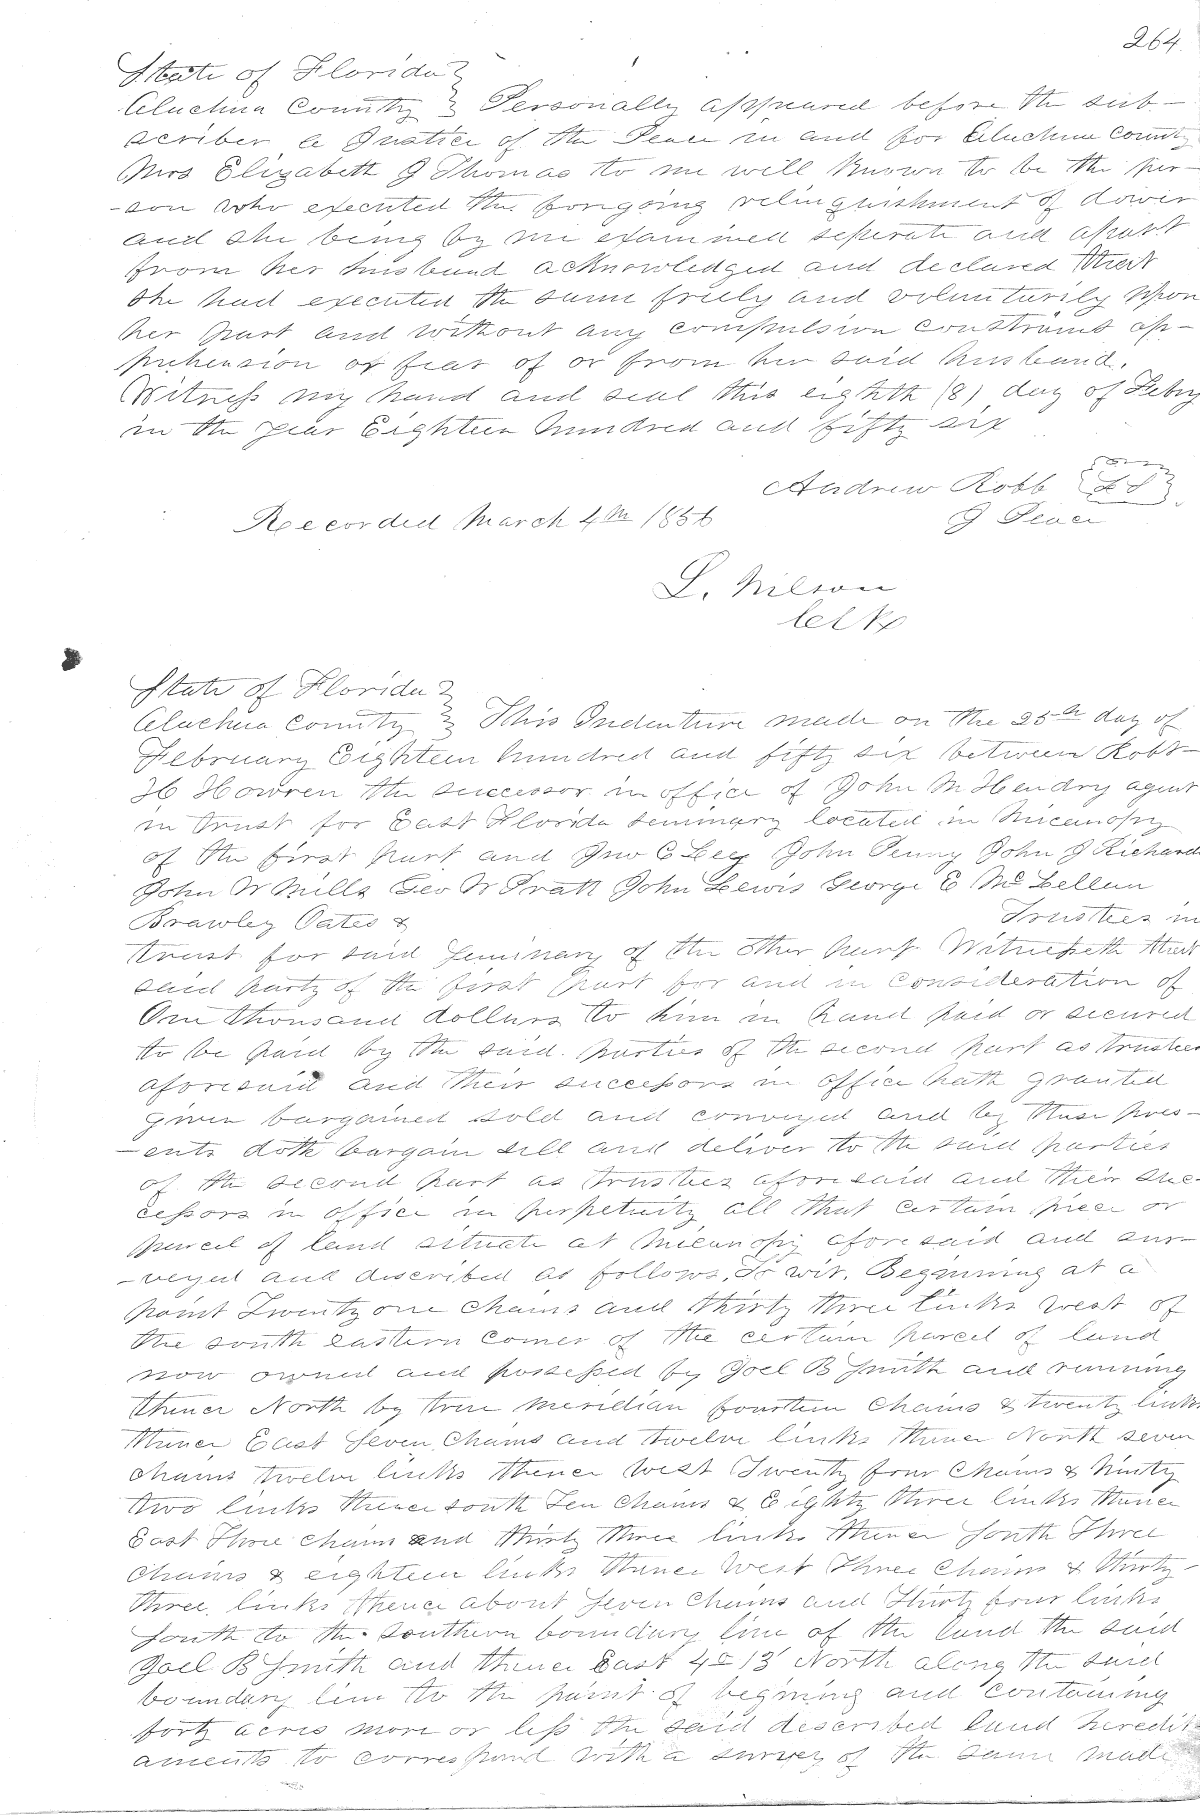 264
State of Florida }
Alachua County } Personally appeared before the sub-
scriber a Justice of the Peace in and for Alachua County
Mrs Elizabeth J Thomas to me well known to be the per-
-son who executed the foregoing relinquishment of dower
and she being by me examined seperate and apart
from her husband acknowledged and declared that
she had executed the same freely and voluntarily upon
her part and without any compulsion constraint ap-
prehension or fear of or from her said husband.
Witness my hand and seal this eighth (8) day of Febry
in the year Eighteen hundred and fifty six
Andrew Robb L S
J Peace
Recorded March 4th 1856
L. Wilson
Clk
State of Florida }
Alachua County } This Indenture made on the 25th day of
February Eighteen hundred and fifty six between Robt
H Howren the successor in office of John M Hendry agent
in trust for East Florida Seminary located in Micanopy
of the first part and Jno C Ley John Penny John J Richard
John W Mills Geo W Pratt John Lewis George E McLellan
Brawley Oates & Trustees in
trust for said Seminary of the other part Witnesseth that
said party of the first part for and in consideration of
One thousand dollars to him in hand paid or secured
to be paid by the said parties of the second part as trustees
aforesaid and their successors in office hath granted
given bargained sold and conveyed and by these pres-
-ents doth bargain sell and deliver to the said parties
of the second part as trustees aforesaid and their suc-
cessors in office in perpetuity all that certain piece or
parcel of land situate at Micanopy aforesaid and sur-
-veyed and described as follows. To wit. Beginning at a
point Twenty one Chains and thirty three links west of
the south eastern corner of the certain parcel of land
now owned and possessed by Joel B Smith and running
thence North by true meridian fourteen Chains & twenty links
thence East Seven Chains and twelve links thence North seven
chains twelve links thence West Twenty four Chains & Ninety
two links thence south Ten Chains & Eighty three links thence
East Three chains and thirty three links thence South Three
Chains & eighteen links thence West Three Chains & thirty-
three links thence about Seven Chains and Thirty four links
South to the southern boundary line of the land the said
Joel B Smith and thence East 4° 13' North along the said
boundary line to the point of begining and containing
forty acres more or less the said described land heredit
aments to correspond with a survey of the same made